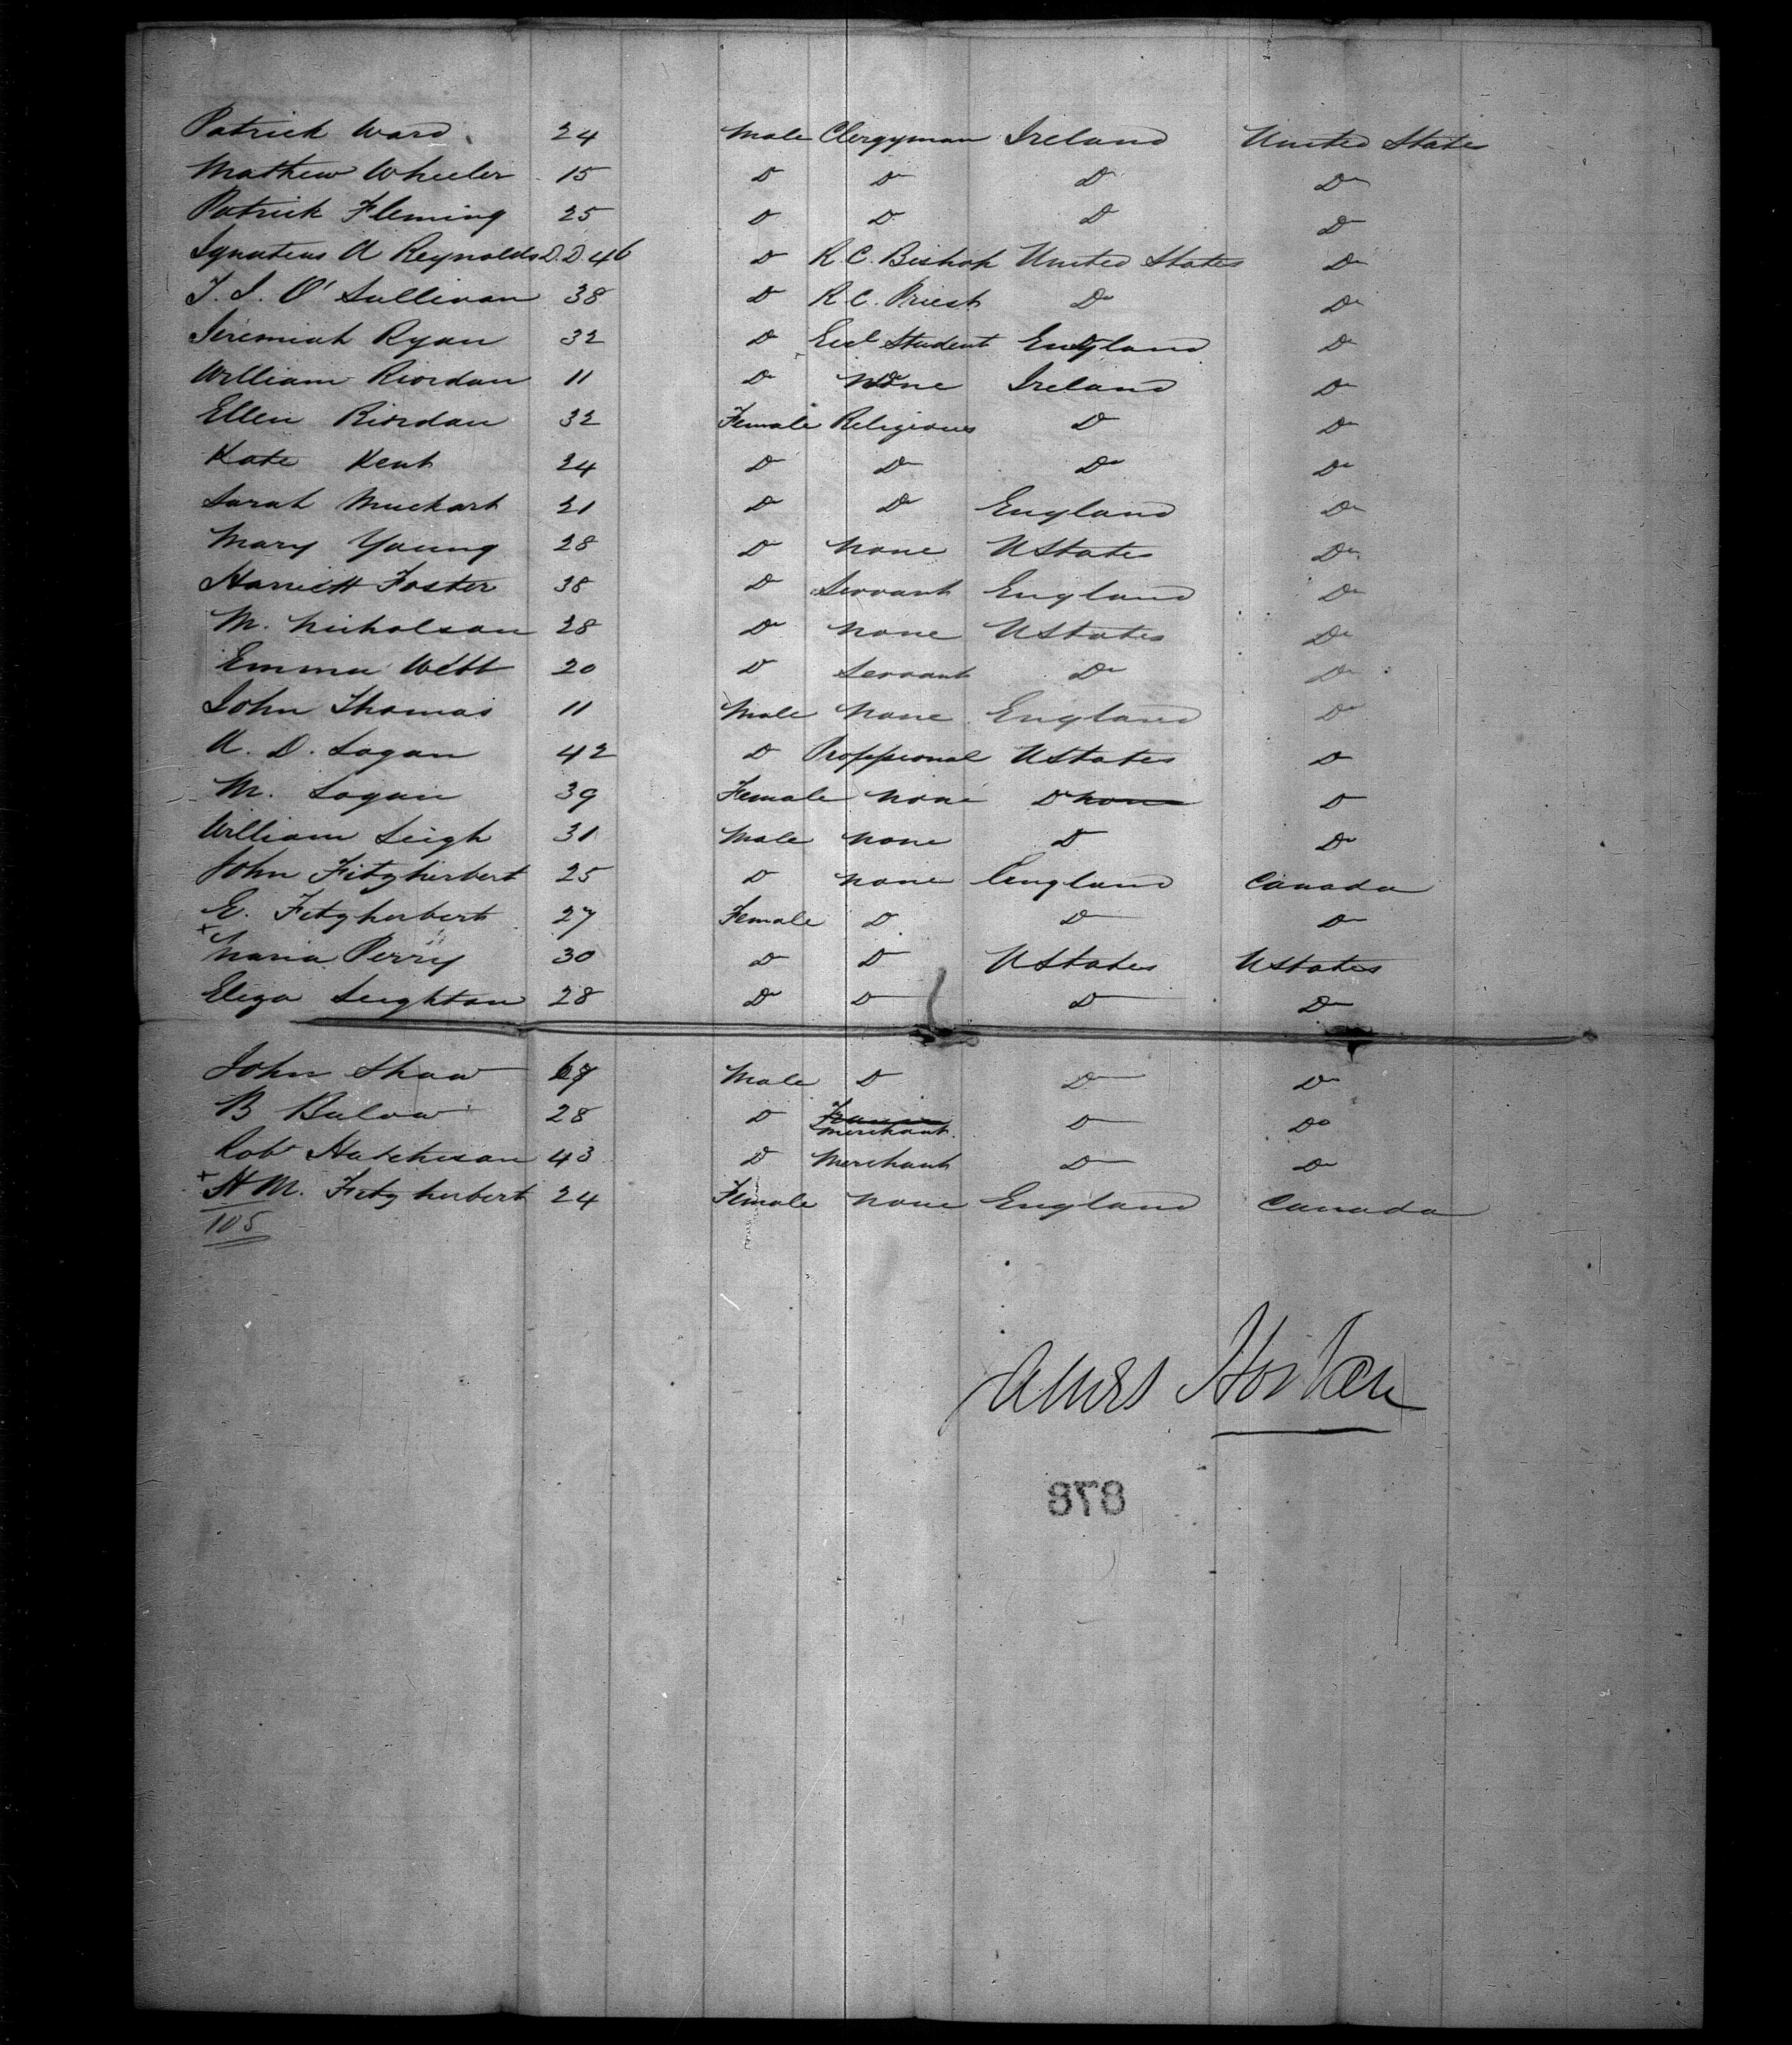 Patrick Ward 24 Male Clergyman Ireland United States
Mathew Wheeler 15 Do Do Do Do
Patrick Fleming 25 Do Do Do Do
Ignatius A Reynolds D.D. 46 Do R.C. Bishop United States Do
T. J. O'Sullivan 38 Do R.C. Priest Do Do
Jeremiah Ryan 32 Do Eccl Student England Do
William Riordan 11 Do None Ireland Do
Ellen Riordan 32 Female Religious Do Do
Kate Kent 24 Do Do Do Do
Sarah Muckart 21 Do Do England Do
Mary Young 28 Do None UStates Do
Harriett Foster 38 Do Servant England Do
M. Nicholson 28 Do None UStates Do
Emma Webb 20 Do Servant Do Do
John Thomas 11 Male None England Do
A. D. Logan 42 Do Proffsional UStates Do
M. Logan 39 Female None Do Do
William Leigh 31 Male None Do Do
John Fitzherbert 25 Do None England Canada
E. Fitzherbert 27 Female Do Do Do
Maria Perry 30 Do Do UStates UStates
Eliza Leighton 28 Do Do Do Do
John Shaw 67 Male Do Do Do
B Bulow 28 Do Merchant Do Do
Robt Hutcheson 43 Do Merchant Do Do
H M. Fitzherbert 24 Female None England Canada
105
James Hosken
878